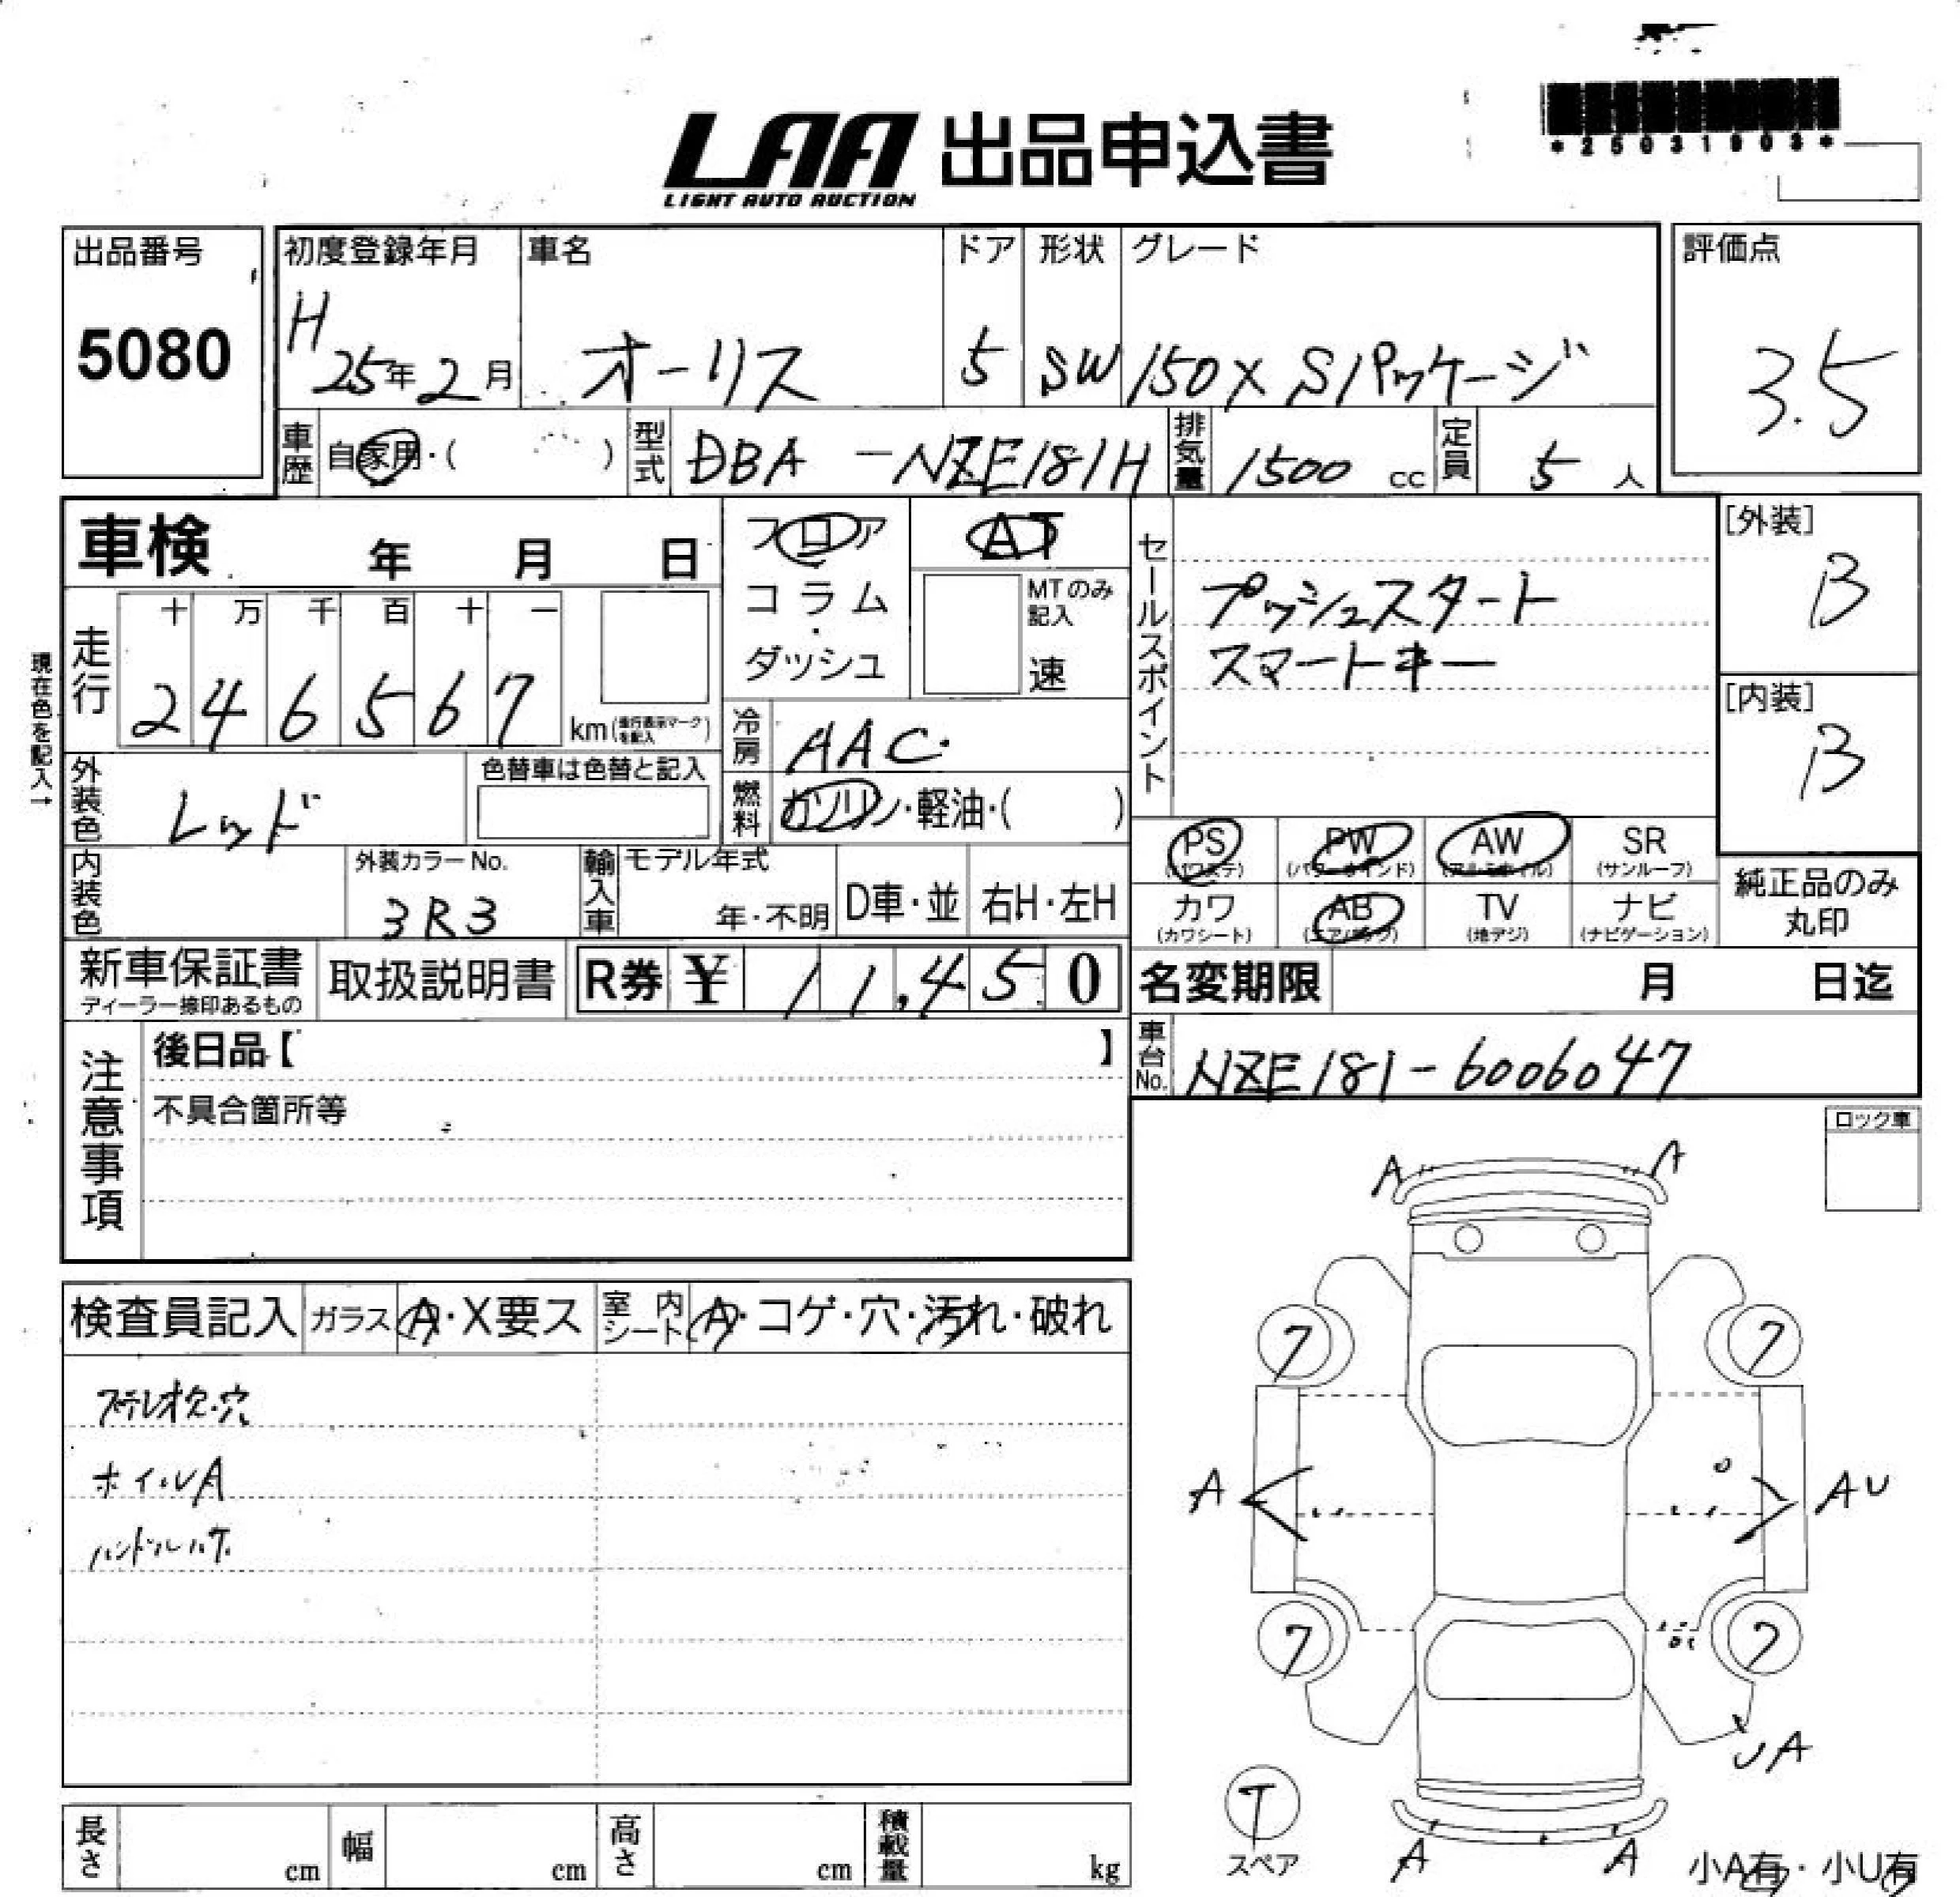 LAA 出品申込書
LIGHT AUTO AUCTION
*25031903*
出品番号
5080
初度登録年月
H25年2月
車名
オーリス
ドア
5
形状
SW
グレード
150X Sパッケージ
評価点
3.5
車歴
自家用・( )
型式
DBA-NZE181H
排気量
1500 cc
定員
5 人
車検 年 月 日
フロア
コラム
・
ダッシュ
AT
MTのみ
記入
速
セールスポイント
プッシュスタート
スマートキー
[外装]
B
[内装]
B
現在色を記入→
走行
十 万 千 百 十 一
2 4 6 5 6 7
km(走行表示マークを記入)
冷房
AAC
燃料
ガソリン・軽油・( )
外装色
レッド
色替車は色替と記入
内装色
外装カラーNo.
3R3
輸入車
モデル年式
年・不明
D車・並
右H・左H
PS
(パワステ)
PW
(パワーウインド)
AW
(アルミホイル)
SR
(サンルーフ)
カワ
(カワシート)
AB
(エアバッグ)
TV
(地デジ)
ナビ
(ナビゲーション)
純正品のみ
丸印
新車保証書
ディーラー捺印あるもの
取扱説明書
R券 ¥ 11,450
名変期限 月 日迄
車台No.
NZE181-6006047
注意事項
後日品【 】
不具合箇所等
ロック車
検査員記入
ガラス
A・X要ス
室内シート
A・コゲ・穴・汚れ・破れ
ステレオ欠・穴
ホイルA
ハンドルハゲ
A A
7 7
A AU
7 7
UA
T
スペア
A A
小A有・小U有
長さ cm
幅 cm
高さ cm
積載量 kg